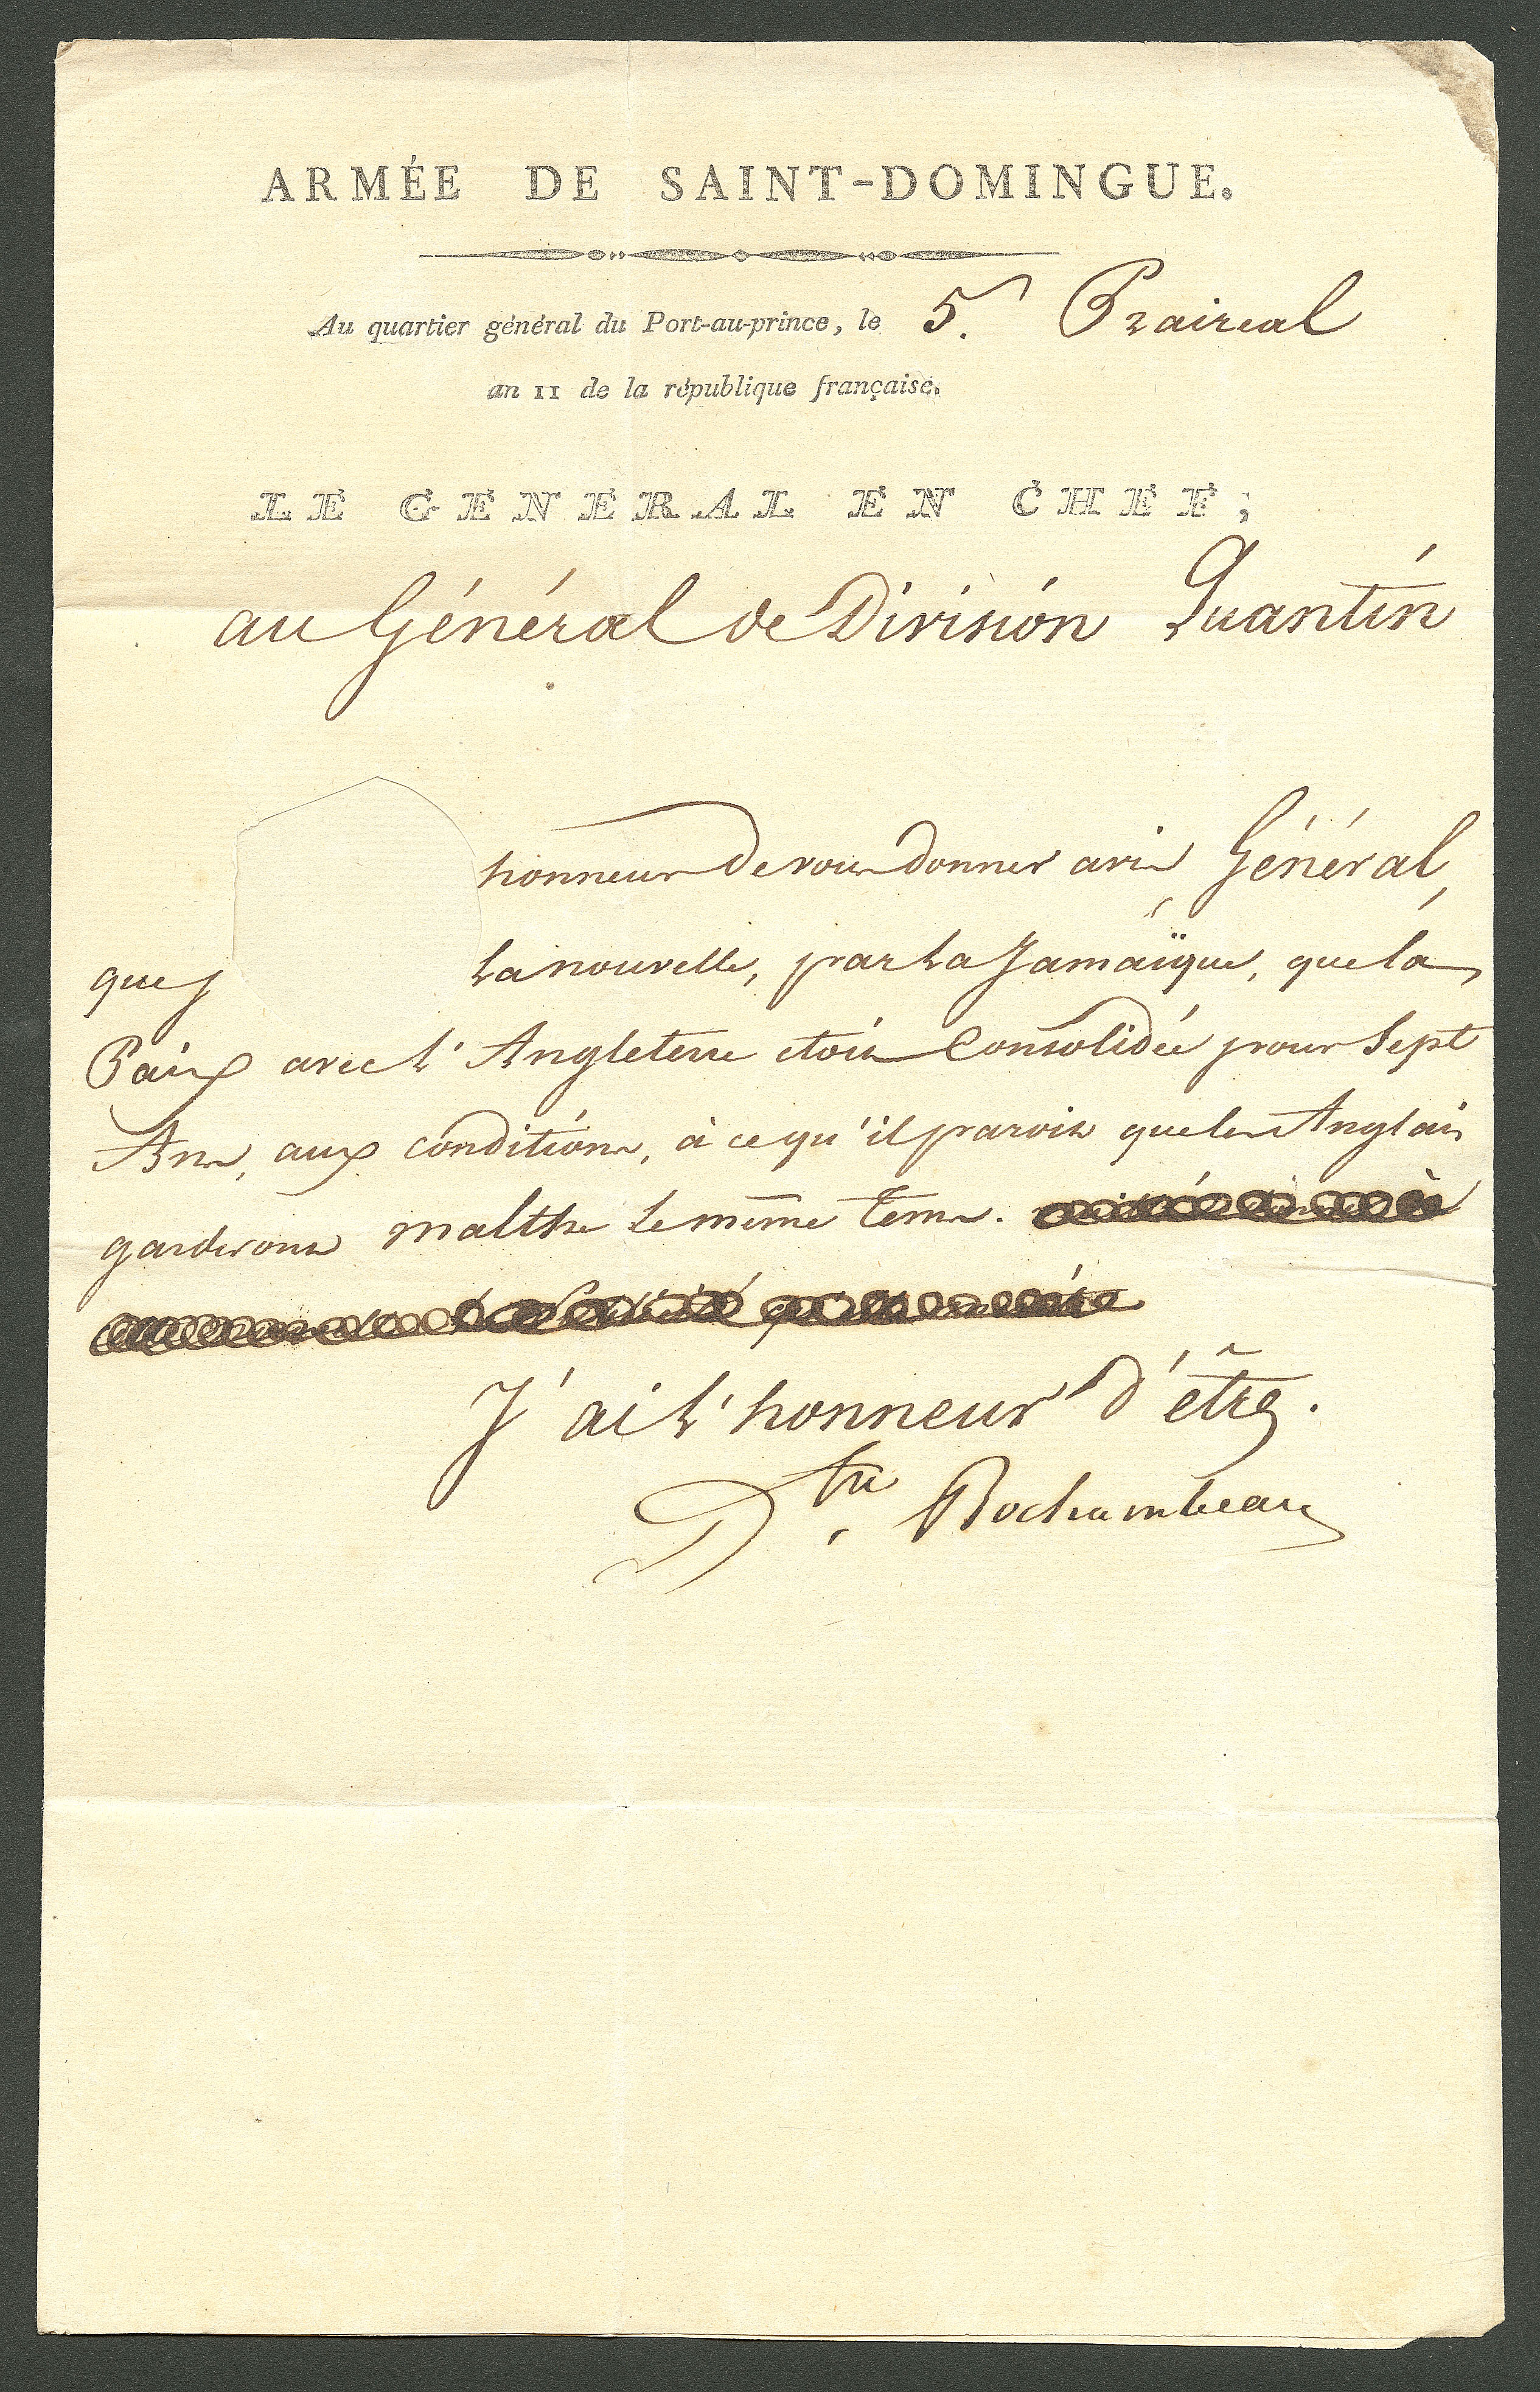 ARMÉE DE SAINT-DOMINGUE.
Au quartier général du Port-au-prince, le 5. Prairéal
an 11 de la république française.
LE GENERAL EN CHEF;
au Général de Division Quantin
honneur de vous donner avis Général,
que j la nouvelle, par la Jamaïque, que la
Paix avec l'Angleterre etoit Consolidée pour Sept
Ans, aux conditions, à ce qu'il paroit que les Anglais
garderont malthe le même tems.
J'ai l'honneur d'être.
Dtn. Rochambeau